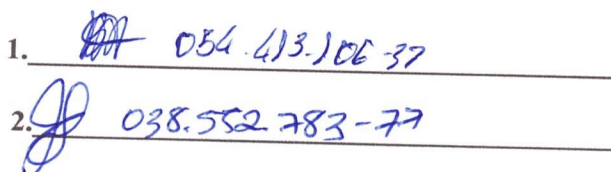 1. 054.413.106-37
2. 038.552.783-77